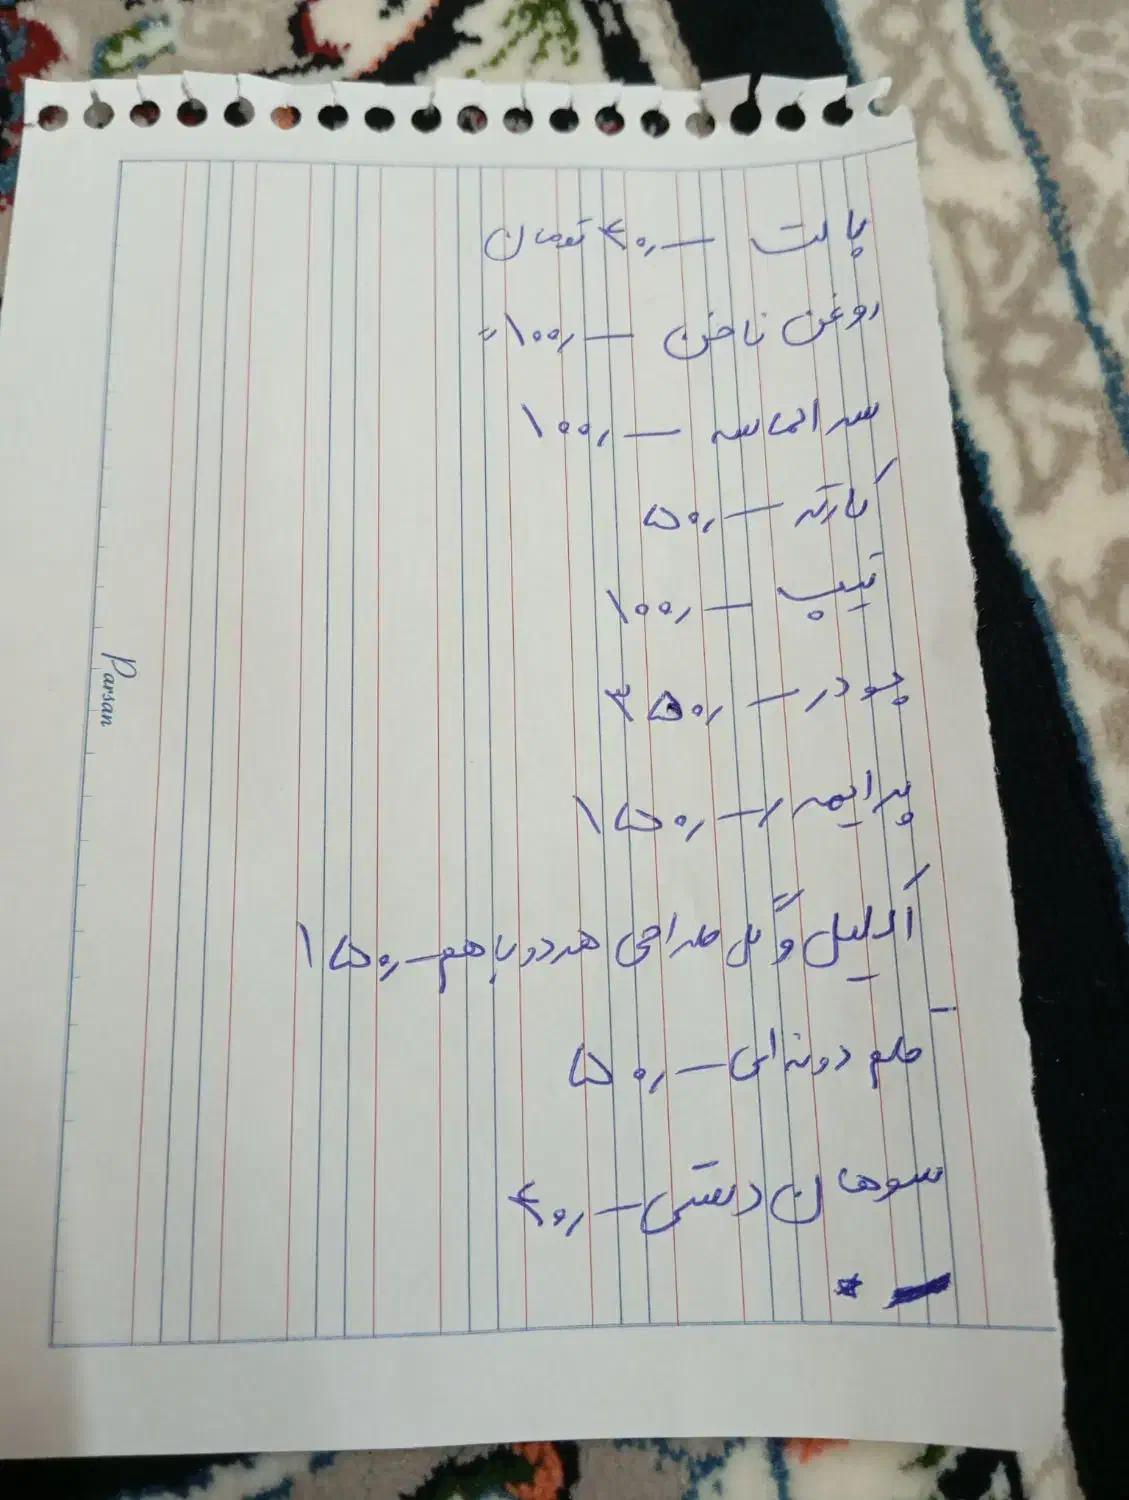 پالت — ۴۰, تومان
روغن ناخن — ۱۰۰, ″
سر الماسه — ۱۰۰,
کارته — ۵۰,
تیپ — ۱۰۰,
پودر — ۳۵۰,
پرایمر — ۱۵۰,
اکلیل و گل طراحی هردو باهم — ۱۵۰,
قلم دونه ای — ۵۰,
سوهان دستی — ۴۰,
Parsan